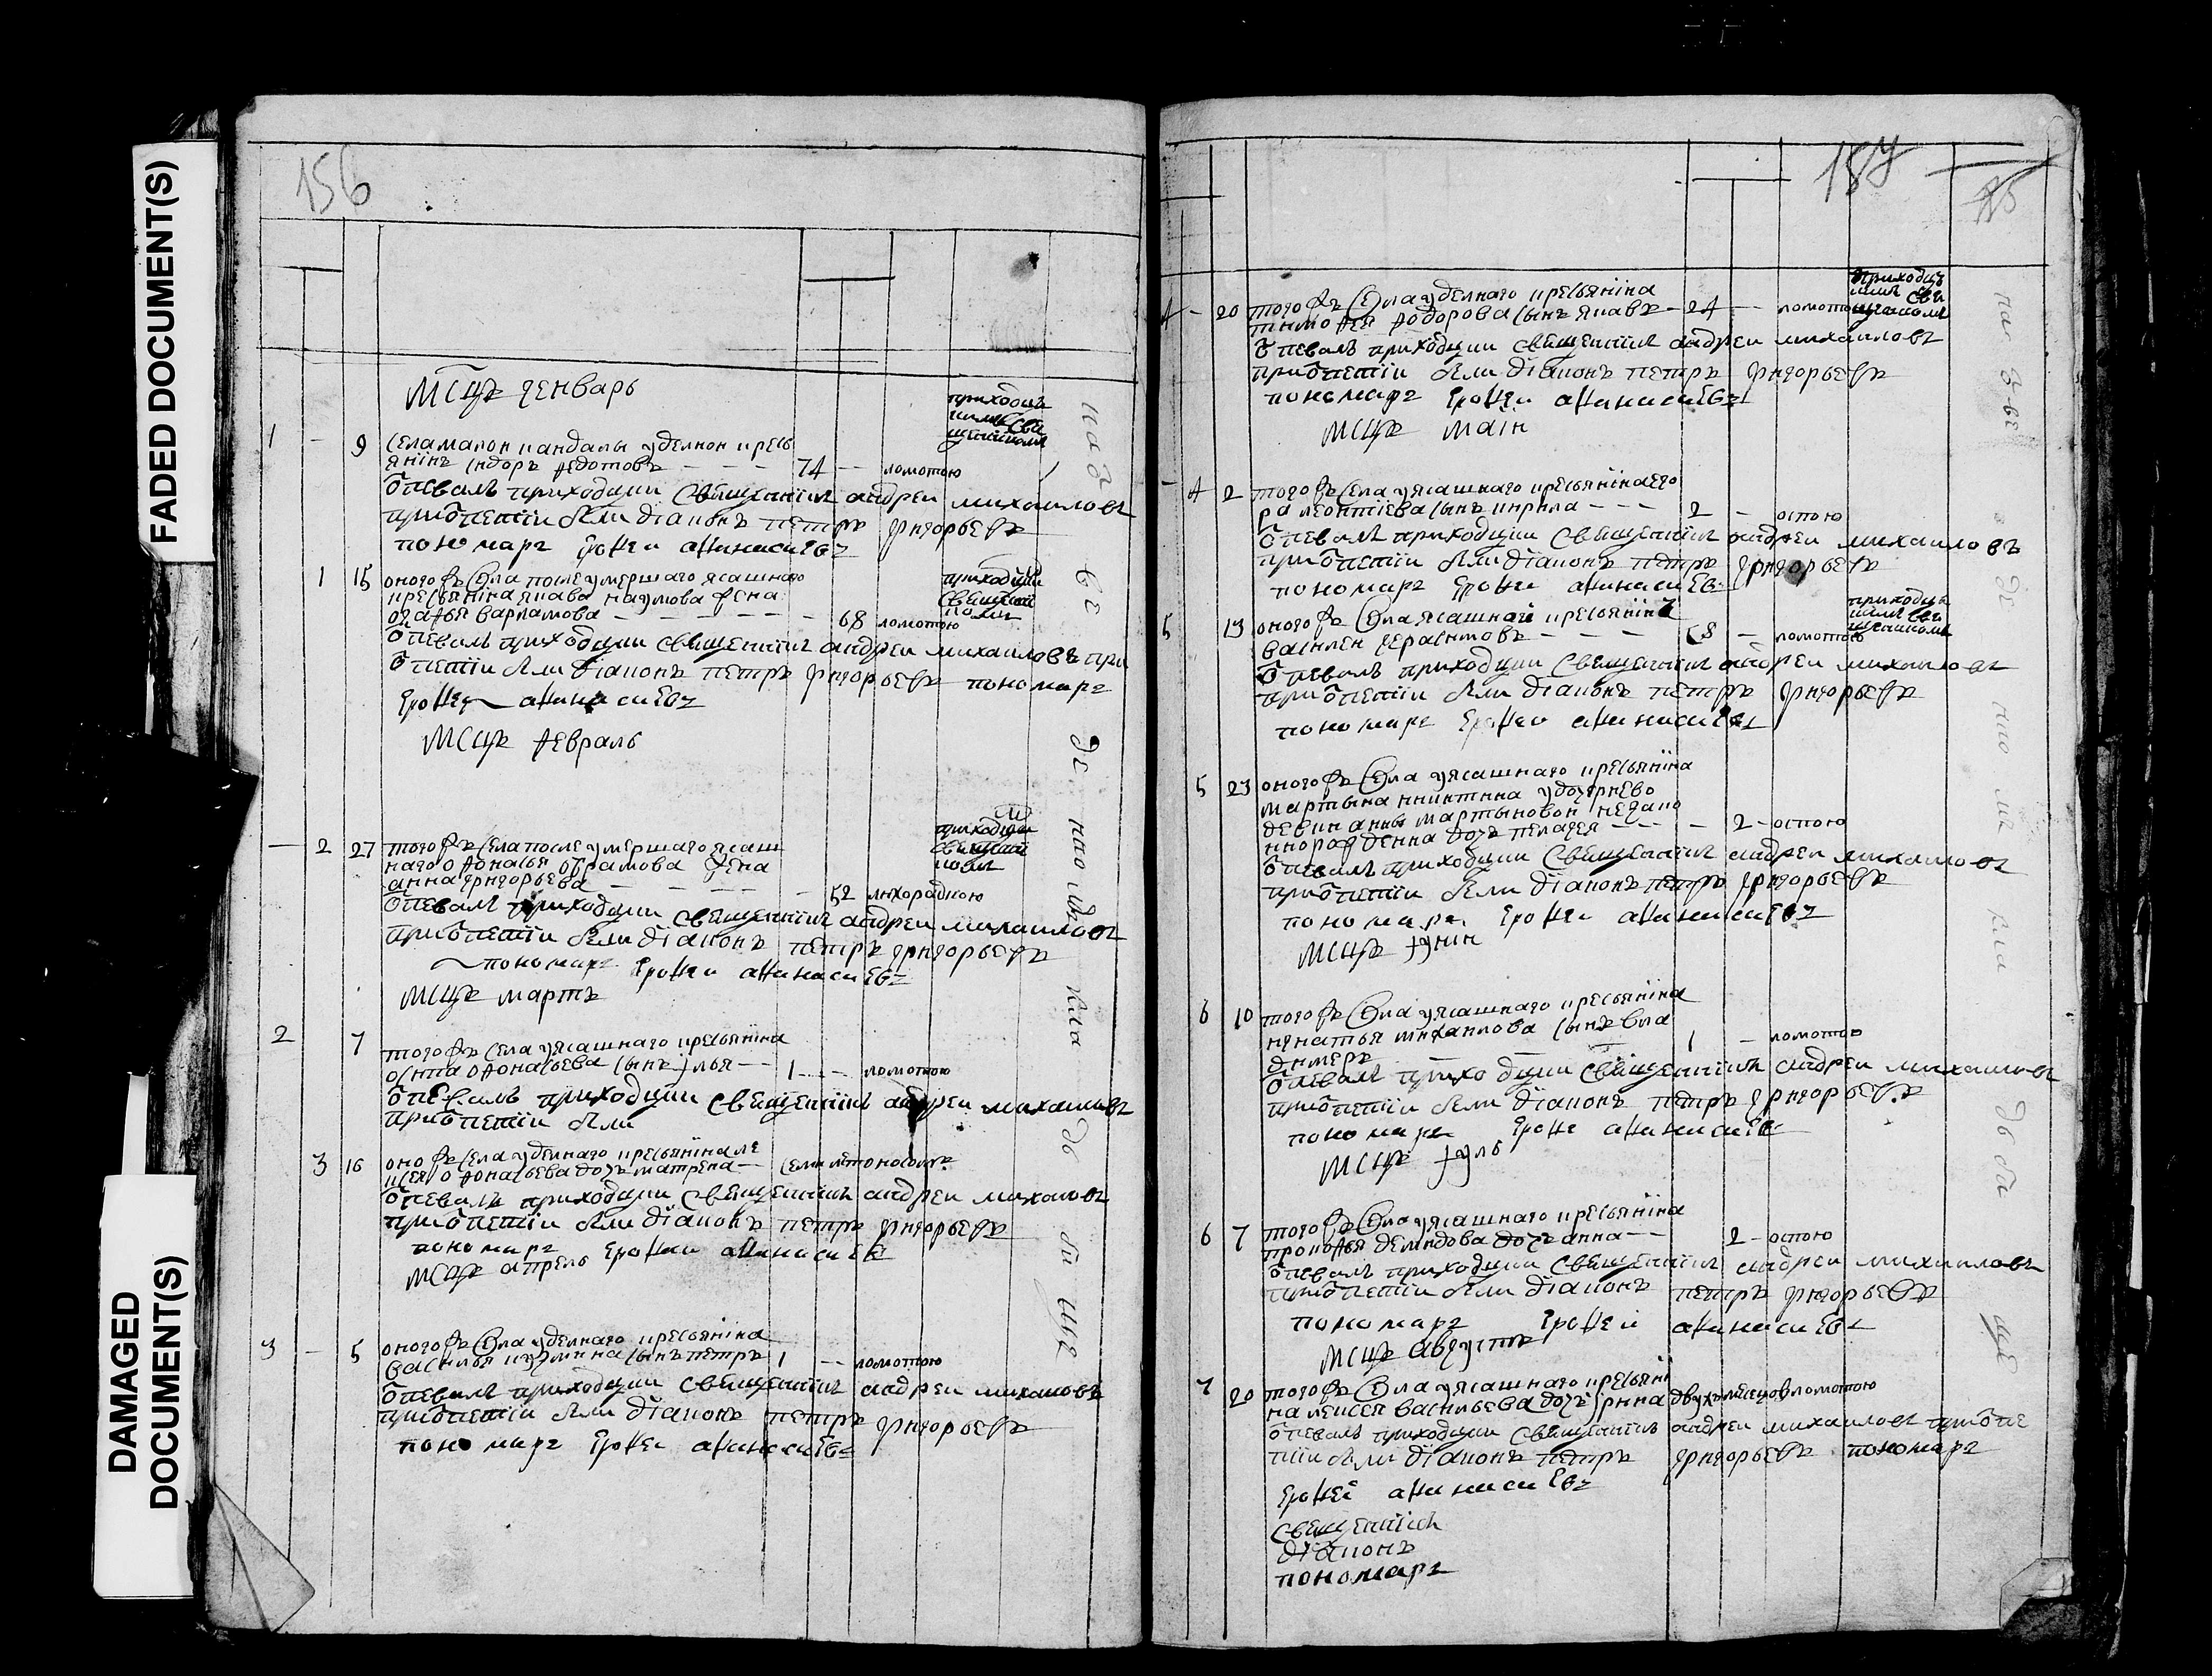 FADED DOCUMENT(S)
DAMAGED
DOCUMENT(S)
156
мсцъ генварь
1 - 9 села малои кандалы уделнои кресь
янiнъ сидоръ федотовъ - - - 74 - ломотою
приходцъ
кимъ свя
щенникомъ
отпевалъ приходцки священникъ андреи михаиловъ
приотпетiи были дiаконъ петръ григорьевъ
пономарь ерофеи афанасиевъ
1 15 оногожъ села после умершаго ясашнаго
кресьянiна якава наумова жена
агафья варламова - - - - - 68 ломотою
приходцки
священни
комъ
отпевалъ приходцки священникъ андреи михаиловъ при
отпетiи были дiаконъ петръ григорьевъ пономарь
ерофеи афанасиевъ
мсцъ февраль
- 2 27 тогожъ села после умершаго ясаш
наго афонасья обрамова жена
анна григорьева - - - - - 52 лихорадкою
приходцки
священни
комъ
отпевалъ приходцки священникъ андреи михаиловъ
приотпетiи были дiаконъ петръ григорьевъ
пономарь ерофеи афанасиевъ
мсцъ мартъ
2 7 тогожъ села у ясашнаго кресьянiна
осипа афонасьева сынъ iлья - - 1 - - ломотою
отпевалъ приходцки священникъ андреи михаиловъ
приотпетiи были
3 16 оножъ села уделнаго кресьянiна але
ксея афонасьева дочь матрена -
отпевалъ приходцки священникъ андреи михаиловъ
приотпетiи были дiаконъ петръ григорьевъ
пономарь ерофеи афанасиевъ
мсцъ апрель
3 - 5 оногожъ села уделнаго кресьянiна
василья кузмина сынъ петръ 1 - - ломотою
отпевалъ приходцки священникъ андреи михаиловъ
приотпетiи были дiаконъ петръ григорьевъ
пономарь ерофеи афанасиевъ
157
4 - 20 тогожъ села уделнаго кресьянiна
тимофея федорова сынъ якавъ - 24 - ломотою
приходцъ
кимъ свя
щенникомъ
отпевалъ приходцки священникъ андреи михаиловъ
приотпетiи были дiаконъ петръ григорьевъ
пономарь ерофеи афанасиевъ
мсцъ маiи
- 4 2 тогожъ села у ясашнаго кресьянiна его
ра леонтiева сынъ кирила - - - 2 - оспою
отпевалъ приходцки священникъ андреи михаиловъ
приотпетiи были дiаконъ петръ григорьевъ
пономарь ерофеи афанасиевъ
5 13 оногожъ села ясашнаi кресьянiнъ
василеи герасимовъ - - - 58 - ломотою
приходцъ
кимъ свя
щенникомъ
отпевалъ приходцки священникъ андреи михаиловъ
приотпетiи были дiаконъ петръ григорьевъ
пономарь ерофеи афанасиевъ
5 23 оногожъ села у ясашнаго кресьянiна
мартына никитина у дочерiево
девки анны мартыновои незако
ннорожденна дочь пелагея - - - 2 - оспою
отпевалъ приходцки священникъ андреи михаиловъ
приотпетiи были дiаконъ петръ григорьевъ
пономарь ерофеи афанасиевъ
мсцъ iунiи
6 10 тогожъ села у ясашнаго кресьянiна
игнатья михаилова сынъ вла
димеръ 1 - ломотою
отпевалъ приходцки священникъ андреи михаиловъ
приотпетiи были дiаконъ петръ григорьевъ
пономарь ерофе афанасиевъ
мсцъ iуль
6 7 тогожъ села у ясашнаго кресьянiна
прокофья демидова дочь анна - - 2 - оспою
отпевалъ приходцки священникъ андреи михаиловъ
приотпетiи были дiаконъ петръ григорьевъ
пономарь ерофеи афанасиевъ
мсцъ августъ
7 20 тогожъ села у ясашнаго кресьянi
на алексея васильева дочь iрина двухъ месецовъ ломотою
отпевалъ приходцки священникъ андреи михаиловъ приотпе
тiи были дiаконъ петръ григорьевъ пономарь
ерофеi афанасиевъ
священникъ
дiаконъ
пономарь